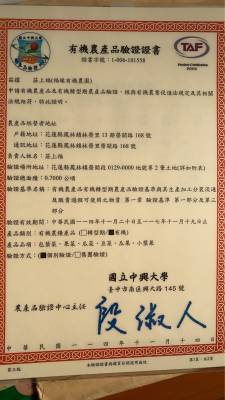 有機農產品驗證證書
證書字號：1-006-101558
TAF
茲據 莊上緣(緣緣有機農園)
申請有機農產品及有機轉型期農產品驗證，核與有機農業促進法規定及其相關
法規相符，特此證明。
農產品經營者地址
戶籍地址：花蓮縣鳳林鎮林榮里 13 鄰榮開路 168 號
通訊地址：花蓮縣鳳林鎮林榮里榮開路 168 號
負責人姓名：莊上緣
驗證場區地址：花蓮縣鳳林鎮榮開段 0129-0000 地號等 2 筆土地(詳如附表)
驗證總面積：0.7000 公頃
驗證有效期間：中華民國一一四年十一月二十日至一一七年十一月十九日止
產品類別：有機農糧產品 (□轉型期/■有機)
產品品項：包葉菜、果菜、瓜菜、豆菜、瓜果、小葉菜
驗證方式：(■個別驗證/□集團驗證)
國立中興大學
臺中市南區興大路 145 號
農產品驗證中心主任
段淑人
中華民國一一四年十一月十四日